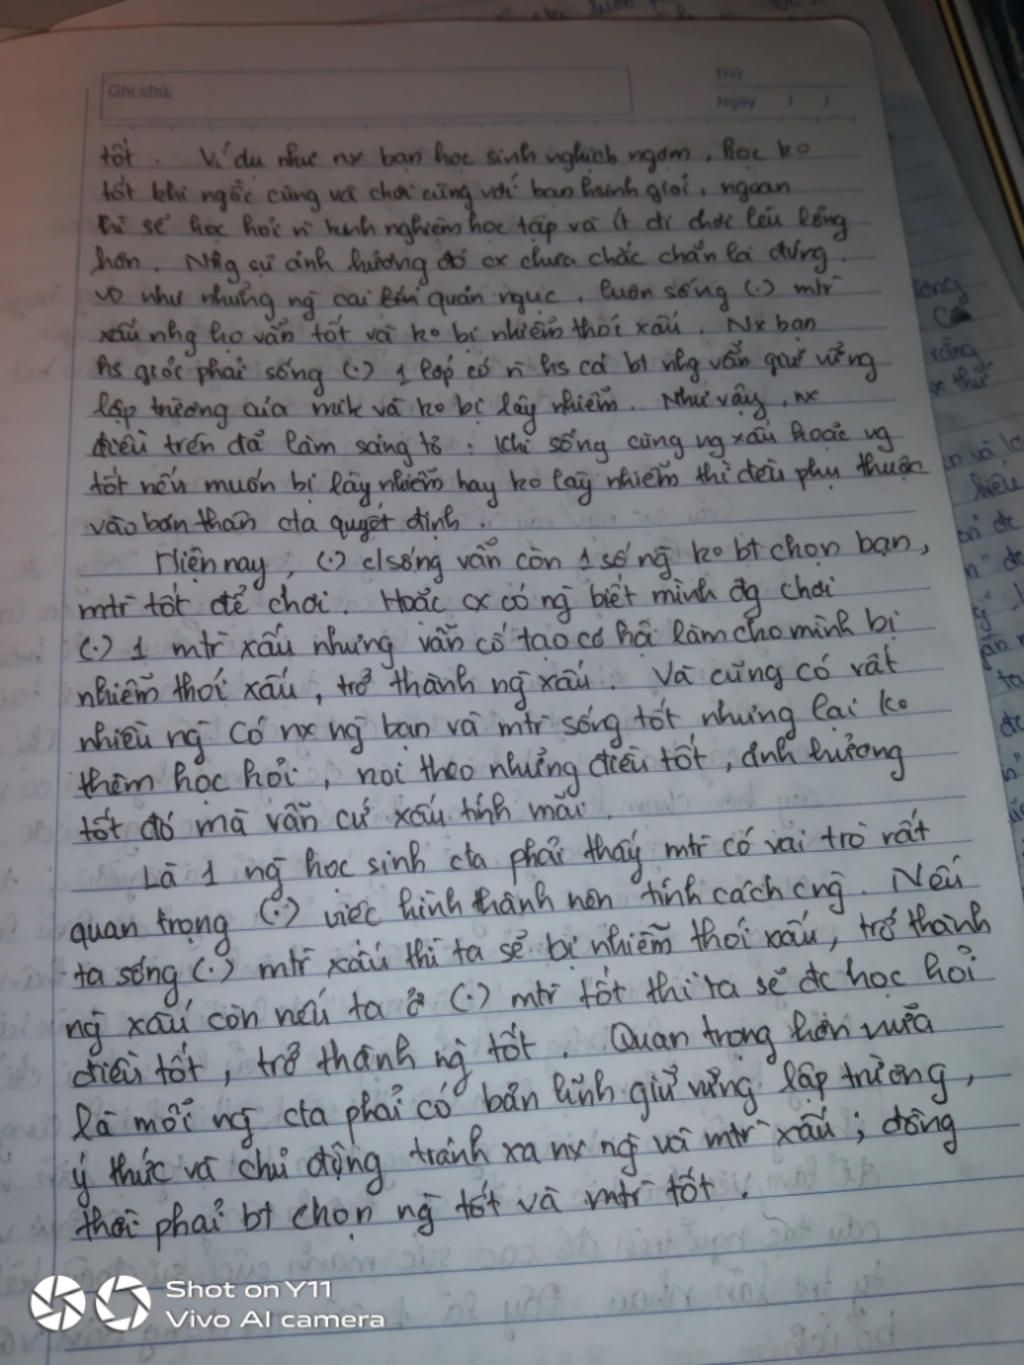 Ghi chú:
Thứ
Ngày / /
tốt. Ví dụ như nx bạn học sinh nghịch ngợm, học ko
tốt khi ngồi cùng và chơi cùng với bạn hsinh giỏi, ngoan
thì sẽ học hỏi n kinh nghiệm học tập và ít đi chơi lêu lổng
hơn. Nhg sự ảnh hưởng đó cx chưa chắc chắn là đúng.
VD như những ng̃ cai quản ngục, luôn sống (.) mtr̀
xấu nhg họ vẫn tốt và ko bị nhiễm thói xấu. Nx bạn
hs giỏi phải sống (.) 1 lớp có n hs cá bt nhg vẫn giữ vững
lập trường của mik và ko bị lây nhiễm. Như vậy, nx
điều trên đã làm sáng tỏ: Khi sống cùng ng xấu hoặc ng
tốt nếu muốn bị lây nhiễm hay ko lây nhiễm thì đều phụ thuộc
vào bản thân cta quyết định.
Hiện nay, (.) c/sống vẫn còn 1 số ng̃ ko bt chọn bạn,
mtr̀ tốt để chơi. Hoặc cx có ng̃ biết mình đg chơi
(.) 1 mtr̀ xấu nhưng vẫn cố tạo cơ hội làm cho mình bị
nhiễm thói xấu, trở thành ng̃ xấu. Và cũng có rất
nhiều ng̃ có nx ng̃ bạn và mtr̀ sống tốt nhưng lại ko
thèm học hỏi, noi theo những điều tốt, ảnh hưởng
tốt đó mà vẫn cứ xấu tính mãi.
Là 1 ng̃ học sinh cta phải thấy mtr̀ có vai trò rất
quan trọng (.) việc hình thành nên tính cách cng̃. Nếu
ta sống (.) mtr̀ xấu thì ta sẽ bị nhiễm thói xấu, trở thành
ng̃ xấu còn nếu ta ở (.) mtr̀ tốt thì ta sẽ đc học hỏi
điều tốt, trở thành ng̃ tốt. Quan trọng hơn nữa
là mỗi ng̃ cta phải có bản lĩnh giữ vững lập trường,
ý thức và chủ động tránh xa nx ng̃ và mtr̀ xấu; đồng
thời phải bt chọn ng̃ tốt và mtr̀ tốt.
Shot on Y11
Vivo AI camera